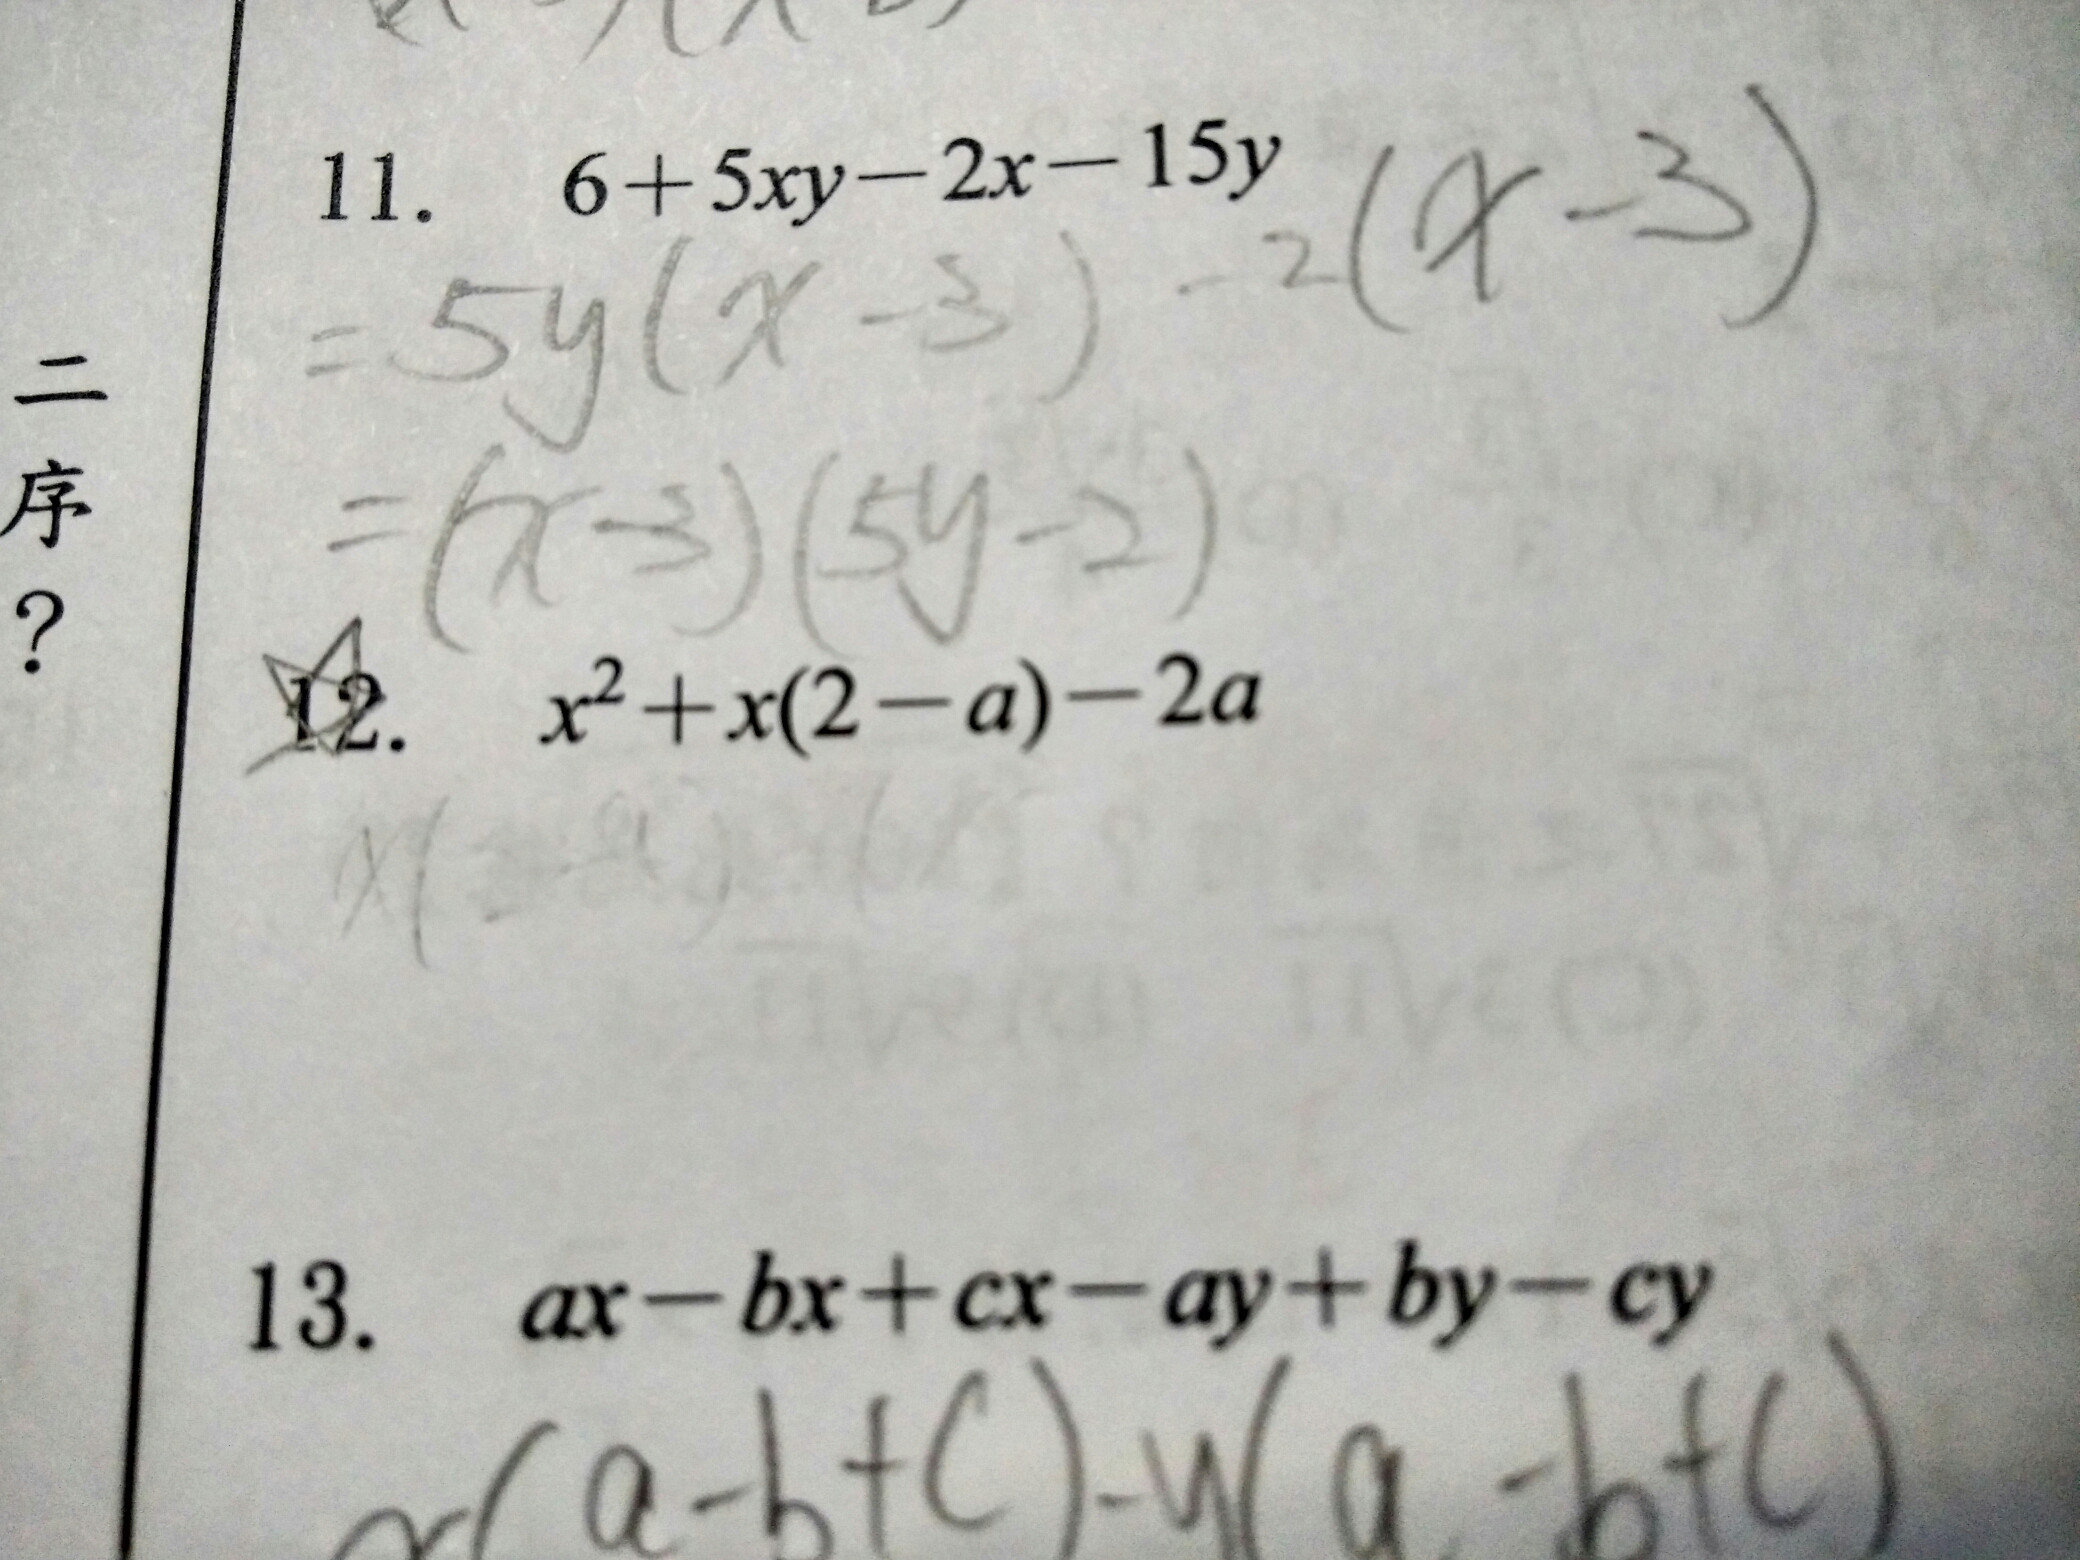 11. 6+5xy-2x-15y
=5y(x-3)-2(x-3)
=(x-3)(5y-2)
12. x²+x(2-a)-2a
13. ax-bx+cx-ay+by-cy
x(a-b+c)-y(a-b+c)
二
序
?